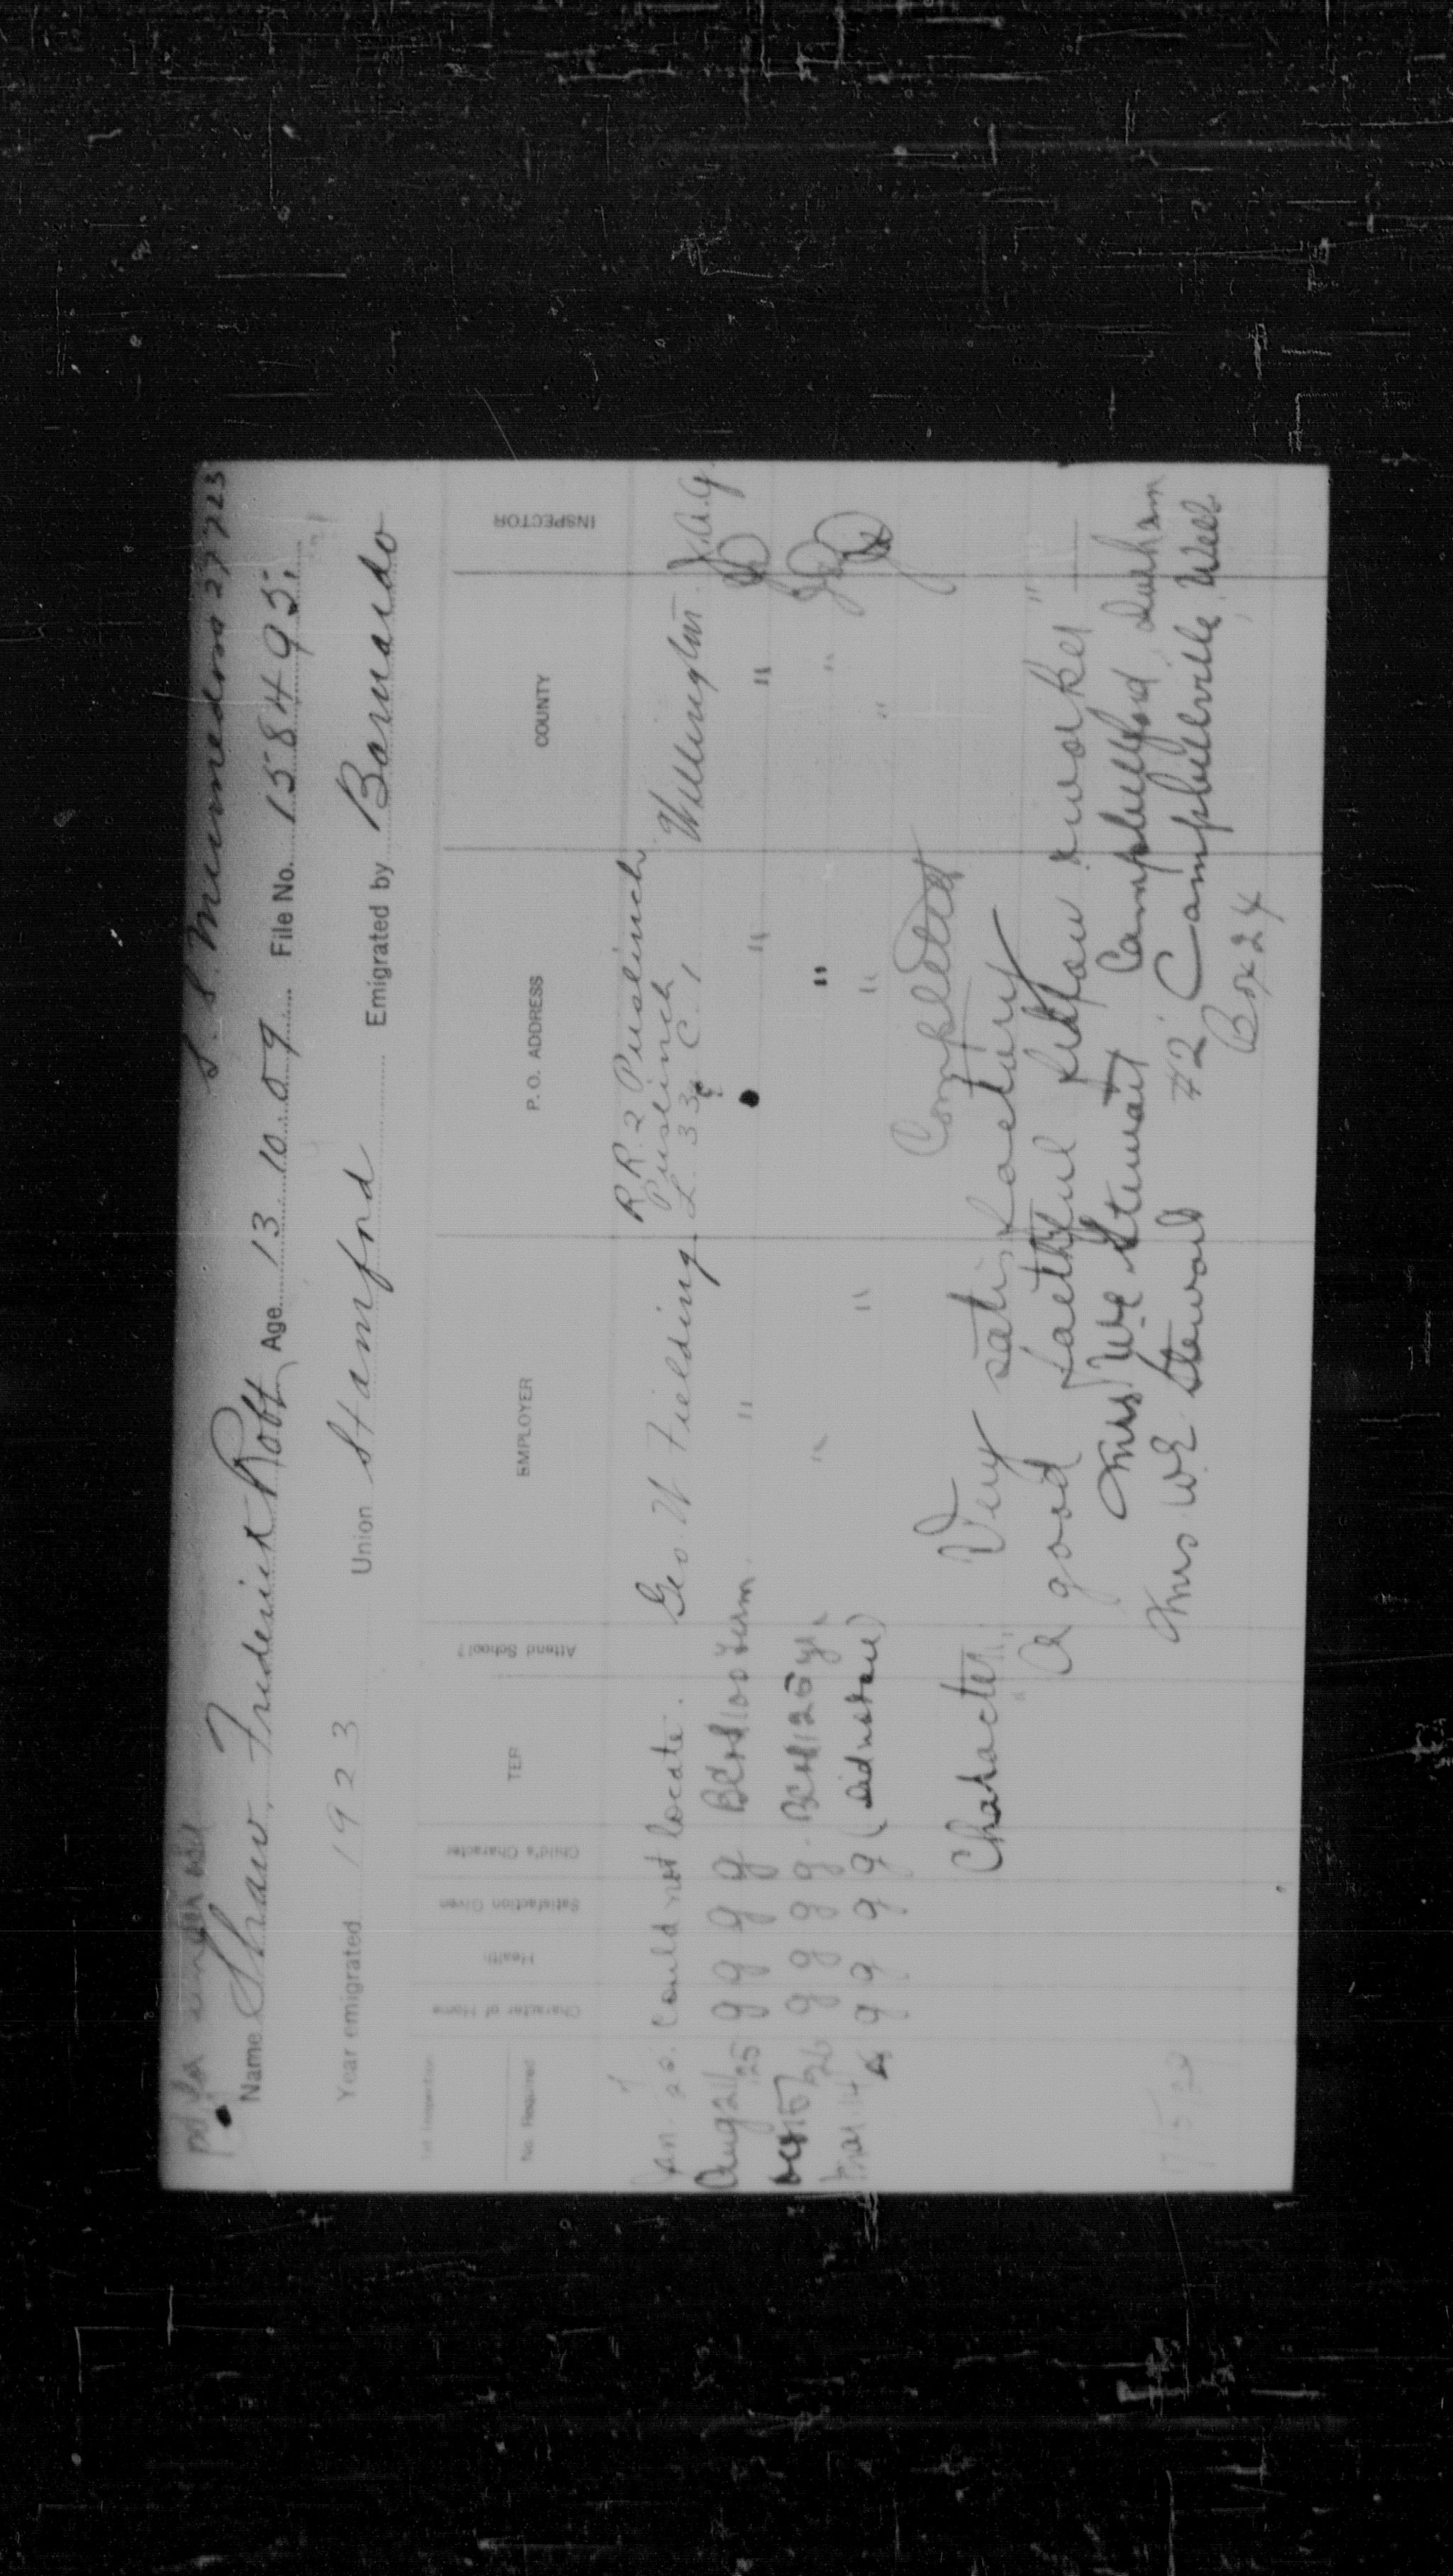 S.S. Minnedosa 27 7 23
Name Shaw, Frederick Robt Age 13 10 09 File No. 158495.
Year emigrated 1923 Union Stamford Emigrated by Barnardo
No. Required Character of Home Health Satisfaction Given Child's Character TER Attend School? EMPLOYER P. O. ADDRESS COUNTY INSPECTOR
R R 2 Puslinch
Puslinch
Jan. 20. Could not locate. Geo. W Fielding L. 33 C. 1 Wellington
Aug 21/25 g g g g " " "
g g g g " " "
Mar 14 g g g g " " "
Completed
Character Very satisfactory
A good faithful worker"
Mrs W.E. Stewart Campbellford, Durham
Mrs. W.E. Steward #2 Campbellville, Well
Box 24